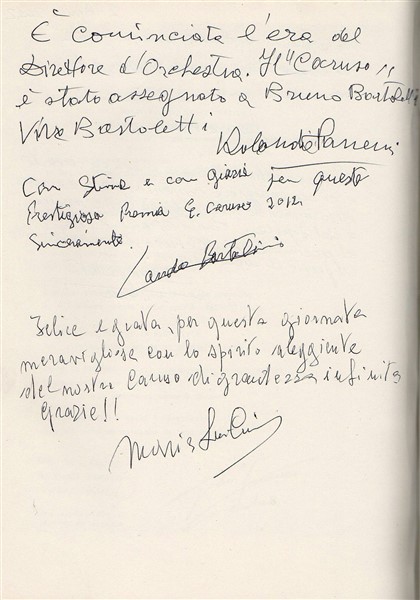 È cominciata l'era del
Direttore d'Orchestra. Il "Caruso"
è stato assegnato a Bruno Bartoletti
Viva Bartoletti
Rolando Panerai
Con stima e con grazie per questo
Prestigioso Premio E. Caruso 2012
Sinceramente.
Lando Bartolini
Felice e grata, per questa giornata
meravigliosa con lo spirito aleggiente
del nostro Caruso di grandezza infinita
Grazie!!